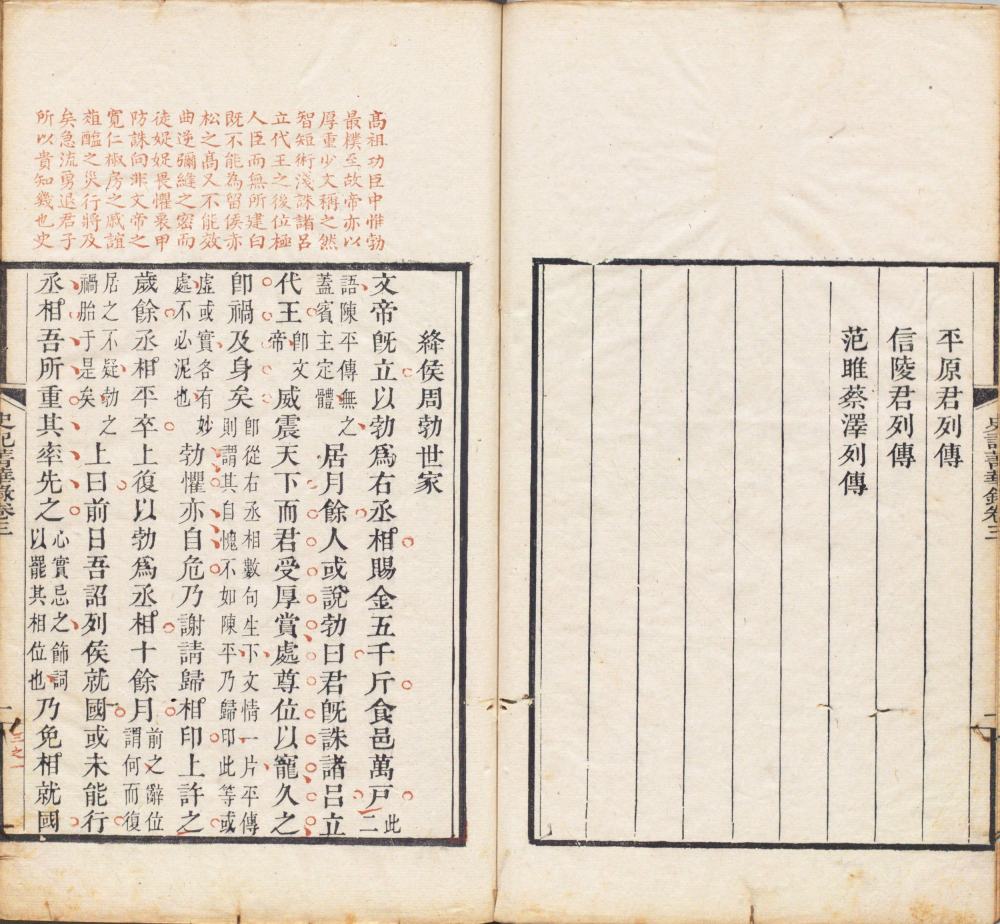 平原君列傳
信陵君列傳
范雎蔡澤列傳
史記菁華錄卷三
高祖功臣中惟勃
最樸至故帝亦以
厚重少文稱之然
智短術淺誅諸呂
立代王之後位極
人臣而無所建白
既不能為留侯赤
松之高又不能效
曲逆彌縫之密而
徒娖娖畏懼衷甲
防誅向非文帝之
寬仁椒房之戚誼
葅醢之災行將及
矣急流勇退君子
所以貴知幾也史
絳侯周勃世家
文帝旣立以勃爲右丞相賜金五千斤食邑萬戸此二
語陳平傳無之蓋賓主定體居月餘人或說勃曰君旣誅諸呂立
代王卽文帝威震天下而君受厚賞處尊位以寵久之
卽禍及身矣卽從右丞相數句生下文情一片平傳則謂其自愧不如陳平乃歸印此等或
虛或實各有妙處不必泥也勃懼亦自危乃謝請歸相印上許之
歲餘丞相平卒上復以勃爲丞相十餘月前之辭位謂何而復
居之不疑勃之禍胎于是矣上曰前日吾詔列侯就國或未能行
丞相吾所重其率先之心實忌之飾詞以罷其相位也乃免相就國
史記菁華錄卷三
一
三之一